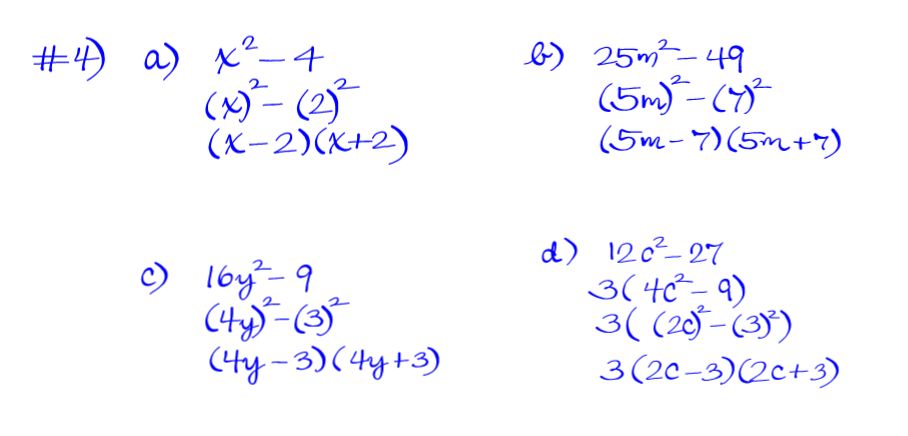 #4) a) x² - 4
(x)² - (2)²
(x-2)(x+2)
b) 25m² - 49
(5m)² - (7)²
(5m-7)(5m+7)
c) 16y² - 9
(4y)² - (3)²
(4y-3)(4y+3)
d) 12c² - 27
3(4c² - 9)
3((2c)² - (3)²)
3(2c-3)(2c+3)